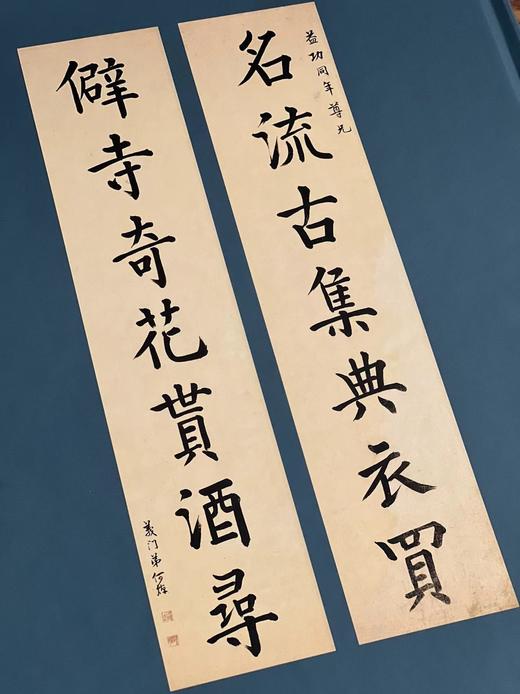 益功同年尊兄
名流古集典衣買
僻寺奇花貰酒尋
義门弟何焯